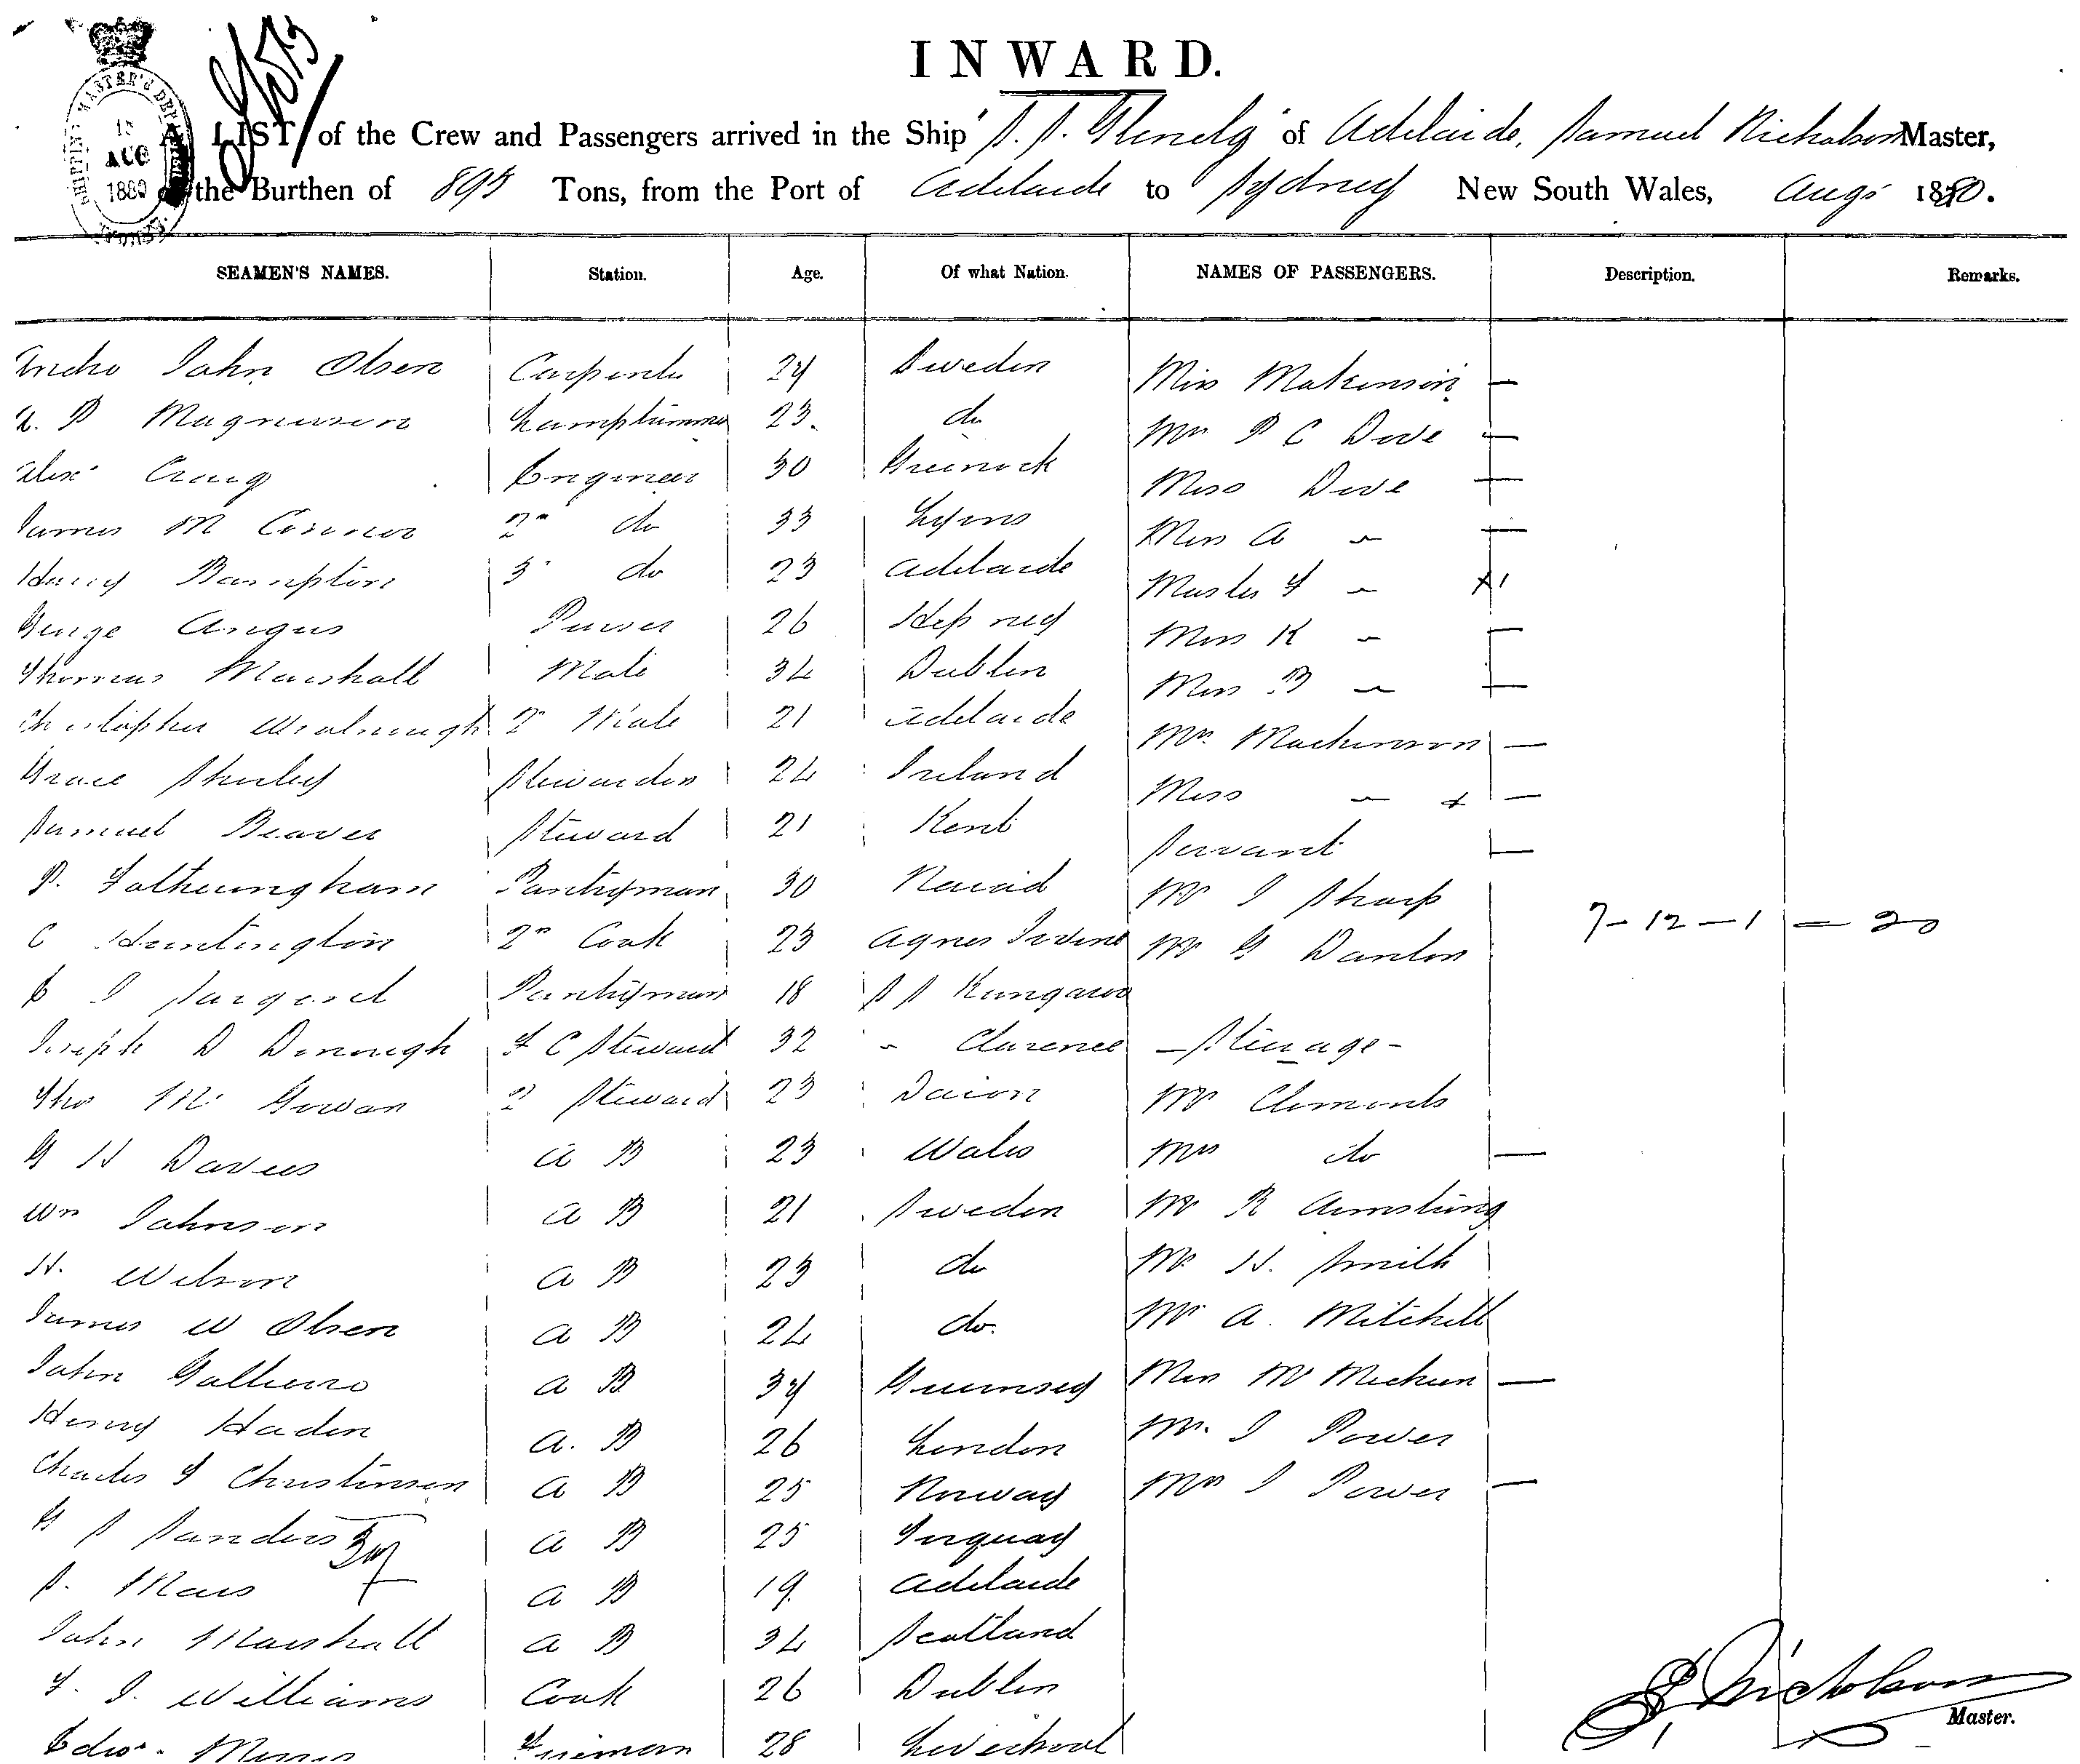 INWARD.
A LIST of the Crew and Passengers arrived in the Ship S. S. Glenelg of Adelaide, Samuel Nicholson Master,
the Burthen of 895 Tons, from the Port of Adelaide to Sydney New South Wales, Augt 1880.
15 AUG 1880
SEAMEN'S NAMES. Station. Age. Of what Nation. NAMES OF PASSENGERS. Description. Remarks.
John Olsen Carpenter 24 Sweden Miss Makinson —
P Magnuson Lamptrimmer 23 do Mr P C Dove —
Alex Craig Engineer 30 Greenock Miss Dove —
James M Connor 2nd do 33 Lyons Miss A ~ —
Harry Bampton 3 do 23 Adelaide Master F ~
George Angus Purser 26 Miss K ~ —
Thomas Marshall Mate 34 Dublin Miss B ~ —
Christopher 2nd Mate 21 Adelaide Mr. Mackinnon —
Grace Shirley Stewardess 24 Ireland Miss ~ + —
Samuel Beaver Steward 21 Kent Servant —
P. Fotheringham Pantryman 30 Mr J Sharp
C Huntington 2nd Cook 23 Agnes Irvine Mr G Danton 7 - 12 - 1 = 20
E J Sargent Pantryman 18 S S Kangaroo
Joseph D Donough F C Steward 32 " Clarence - Steerage -
Thos Mc Gowan 2 Steward 23 Devon Mr Clements
G H Davies A B 23 Wales Mrs do —
Wm Johnson A B 21 Sweden Mr R Armstrong
H. Wilson A B 23 do Mr H. Smith
James W Olsen A B 24 do. Mr A. Mitchell
John A B 34 Guernsey Miss —
Henry Haden A. B 26 London Mr. J Power
Charles F Christinsen A B 25 Norway Mrs J Power —
G S Sanders A B 25 Torquay
S. A B 19 Adelaide
John Marshall A B 34 Scotland
F. J. Williams Cook 26 Dublin
Edwd. Morris Fireman 28 Liverpool
S Nicholson
Master.